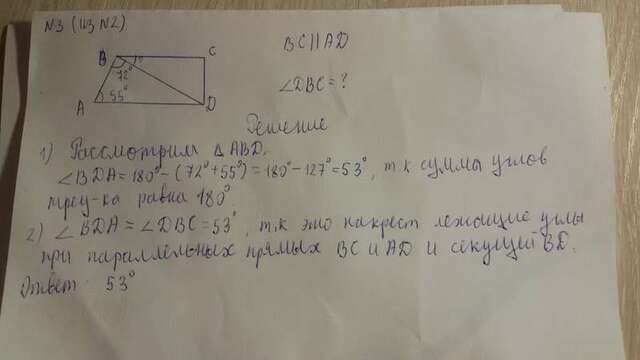 №3 (из №2)
B C
72°
A 55° D
BC||AD
∠DBC=?
Решение
1) Рассмотрим △ABD.
∠BDA=180°-(72°+55°)=180°-127°=53°, т.к сумма углов
треу-ка равна 180°.
2) ∠BDA=∠DBC=53°, т.к это накрест лежащие углы
при параллельных прямых BC и AD и секущей BD.
Ответ: 53°